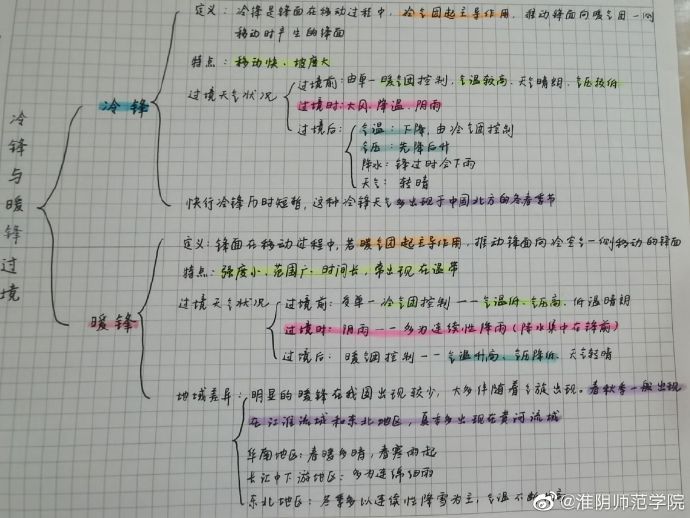 冷锋与暖锋过境
冷锋
定义：冷锋是锋面在移动过程中，冷气团起主导作用，推动锋面向暖气团一侧
移动时产生的锋面
特点：移动快、坡度大
过境天气状况
过境前：由单一暖气团控制，气温较高，天气晴朗，气压较低
过境时：大风、降温、阴雨
过境后：
气温：下降，由冷气团控制
气压：先降后升
降水：锋过时会下雨
天气：转晴
快行冷锋历时短暂，这种冷锋天气多出现于中国北方的冬春季节
暖锋
定义：锋面在移动过程中，若暖气团起主导作用，推动锋面向冷空气一侧移动的锋面
特点：强度小、范围广、时间长，常出现在温带
过境天气状况
过境前：受单一冷气团控制——气温低、气压高、低温晴朗
过境时：阴雨——多为连续性降雨（降水集中在锋前）
过境后：暖气团控制——气温升高、气压降低、天气转晴
地域差异：明显的暖锋在我国出现较少，大多伴随着气旋出现。春秋季一般出现
在江淮流域和东北地区，夏季多出现在黄河流域
华南地区：春暖多晴，春寒雨起
长江中下游地区：多为连绵细雨
东北地区：冬季多以连续性降雪为主，气温不断
@淮阴师范学院